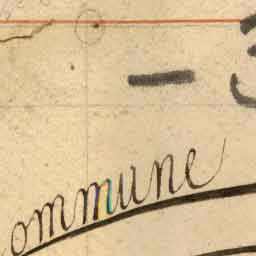 - 3
ommune